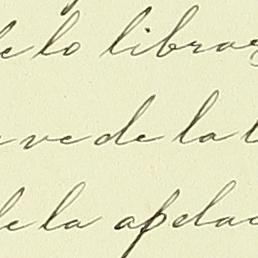 de lo libra
ve de la l
de la apelac